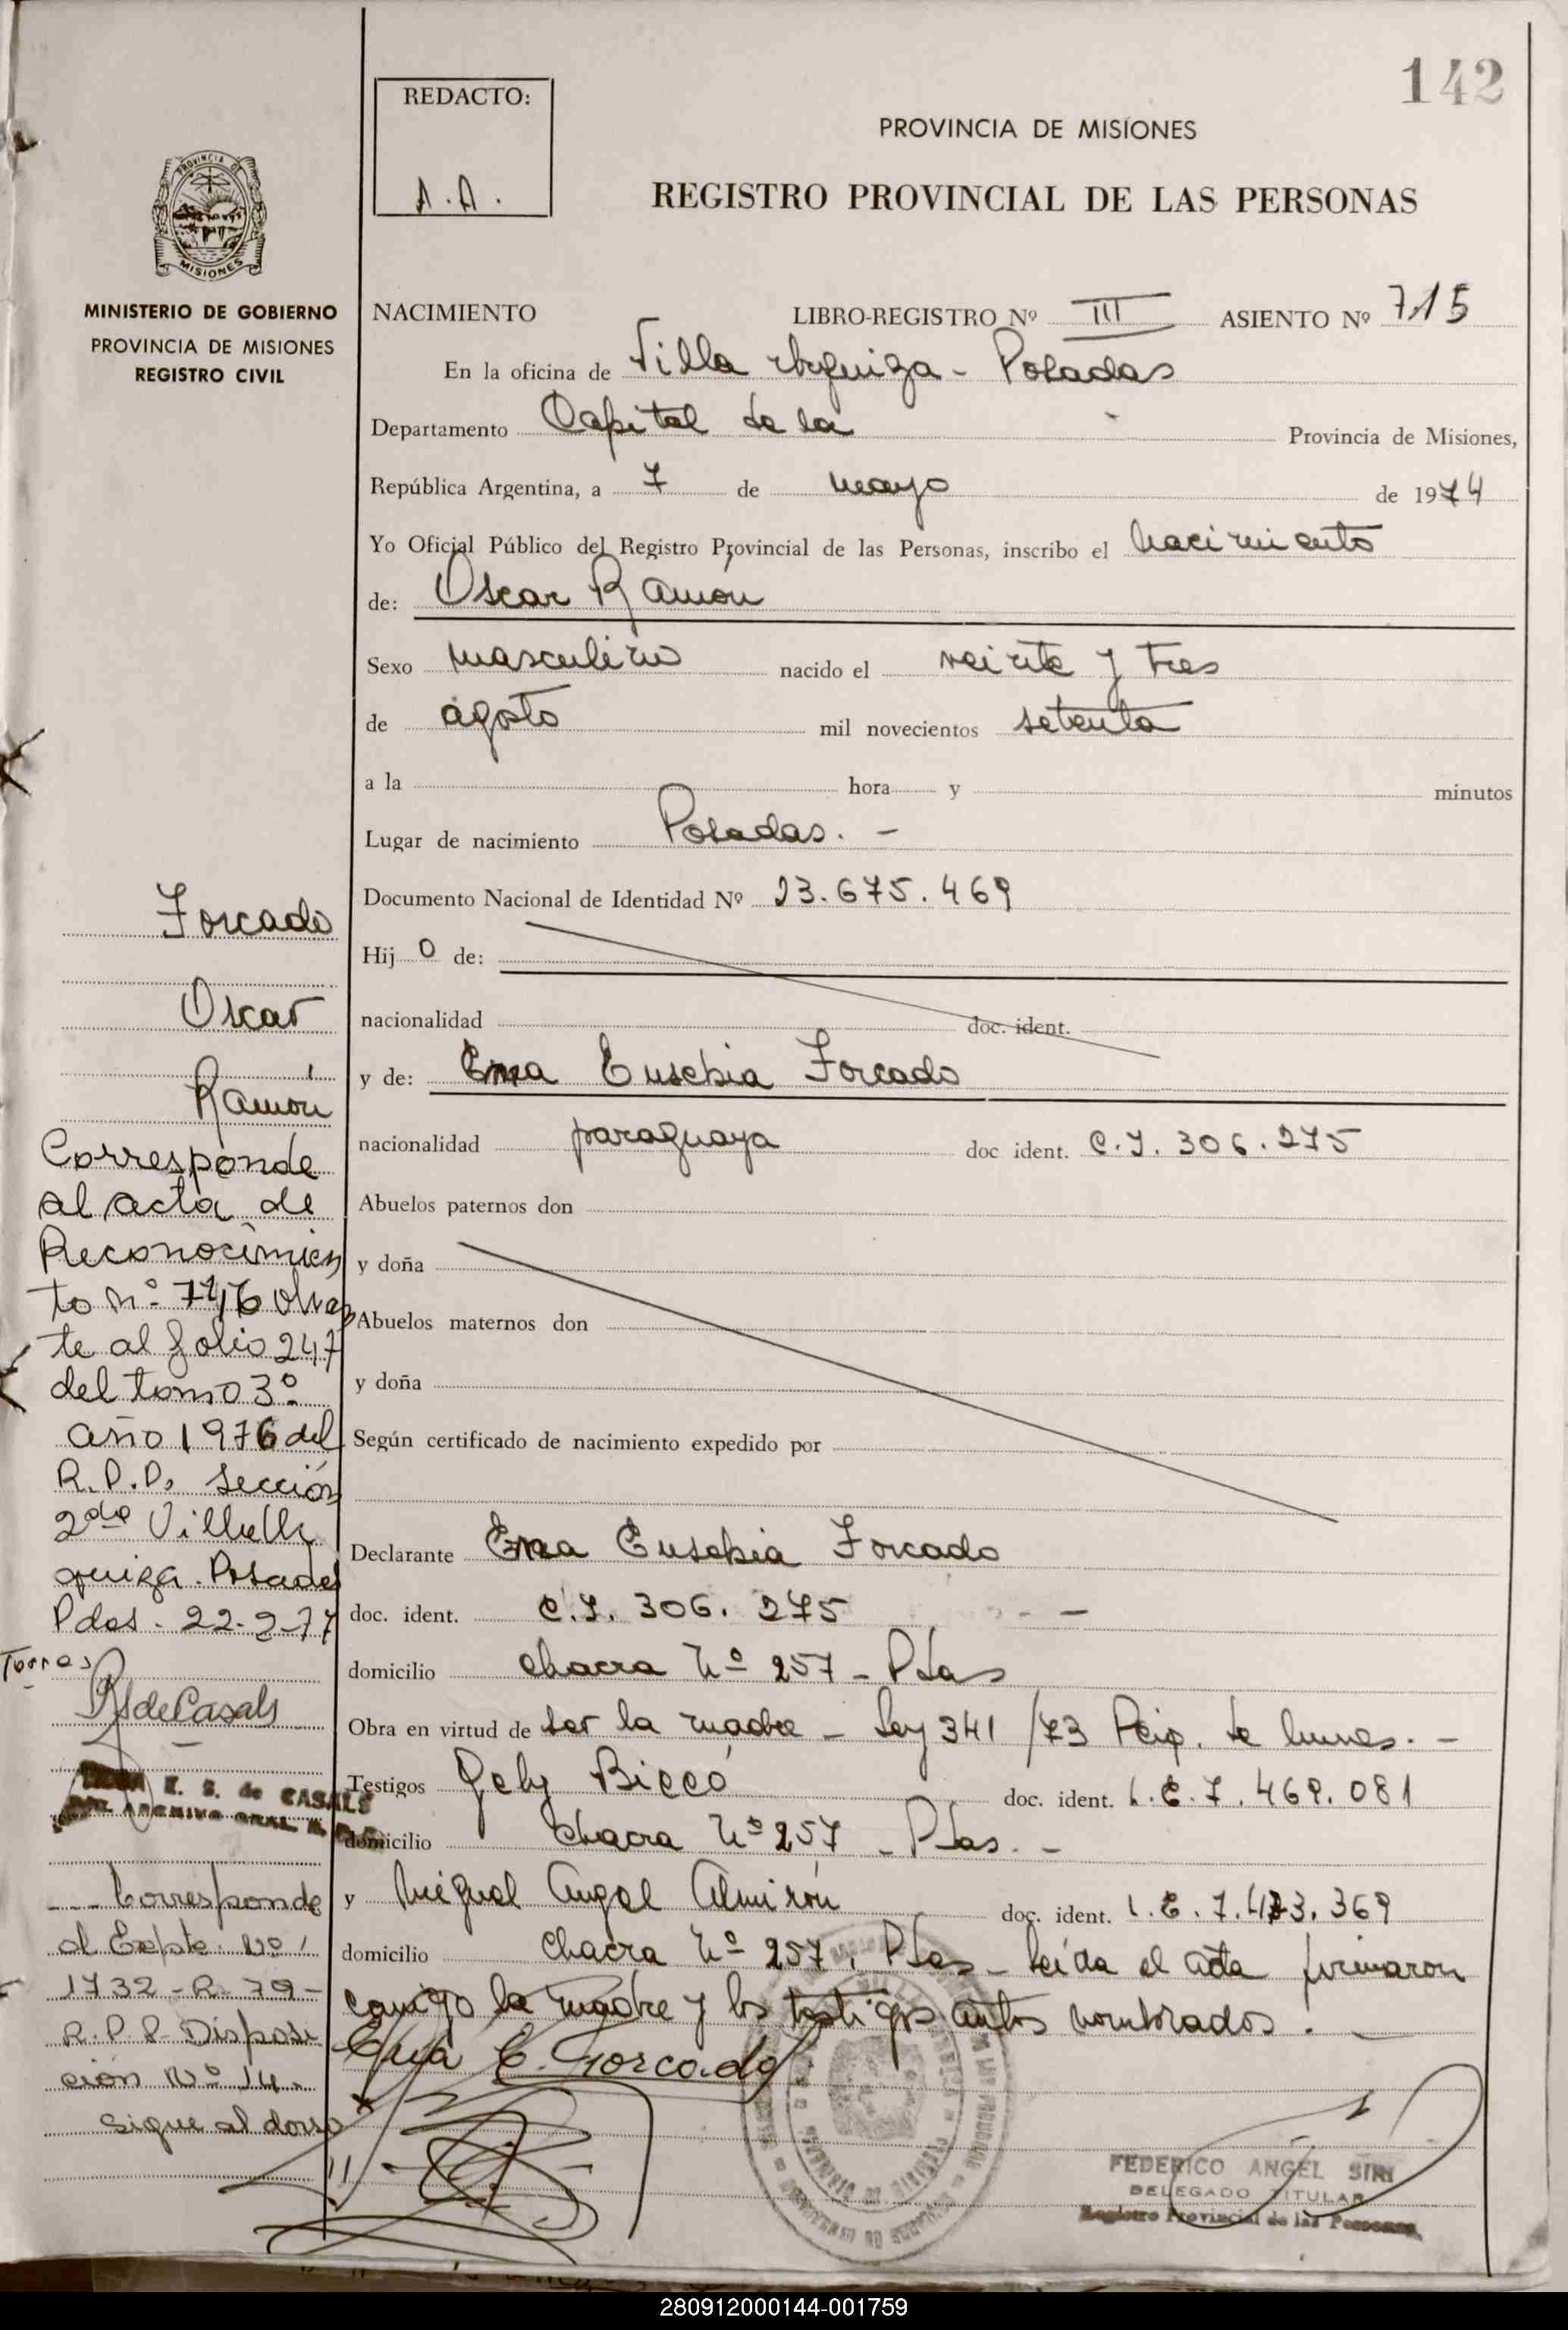 142
REDACTO:
A.A.
PROVINCIA DE MISIONES
REGISTRO PROVINCIAL DE LAS PERSONAS
PROVINCIA DE
MISIONES
MINISTERIO DE GOBIERNO
PROVINCIA DE MISIONES
REGISTRO CIVIL
NACIMIENTO LIBRO-REGISTRO Nº III ASIENTO Nº 715
En la oficina de Villa Urquiza - Posadas
Departamento Capital de la Provincia de Misiones,
República Argentina, a 7 de mayo de 1974
Yo Oficial Público del Registro Provincial de las Personas, inscribo el nacimiento
de: Oscar Ramón
Sexo masculino nacido el veinte y tres
de agosto mil novecientos setenta
a la hora y minutos
Lugar de nacimiento Posadas. -
Documento Nacional de Identidad Nº 23.675.469
Hij o de:
nacionalidad doc. ident.
y de: Ema Eusebia Forcado
nacionalidad paraguaya doc ident. C.I. 306.275
Abuelos paternos don
y doña
Abuelos maternos don
y doña
Según certificado de nacimiento expedido por
Declarante Ema Eusebia Forcado
doc. ident. C.I. 306.275 -
domicilio chacra Nº 257 - Pdas
Obra en virtud de ser la madre - Ley 341/73
Testigos doc. ident. L.E. 7.469.081
domicilio chacra Nº 257 - Pdas. -
y Miguel Angel Almirón doc. ident. L.E. 7.473.369
domicilio chacra Nº 257, Pdas - leída el acta firmaron
conmigo la madre y los testigos antes nombrados. -
Ema E. Forcado
FEDERICO ANGEL SIRI
DELEGADO TITULAR
Registro Provincial de las Personas
Forcado
Oscar
Ramón
Corresponde
al acta de
Reconocimien
to nº 7176 obran
te al folio 247
del tomo 3º
año 1976 del
R.P.P. Sección
2da Villa Ur
quiza. Posadas
Pdas. 22-2-77
Torres
RSdeCasals
E. S. de CASALS
Corresponde
al Expte. Nº
1732-R-79-
R.P.P. Disposi
ción Nº 14.
sigue al dorso
280912000144-001759